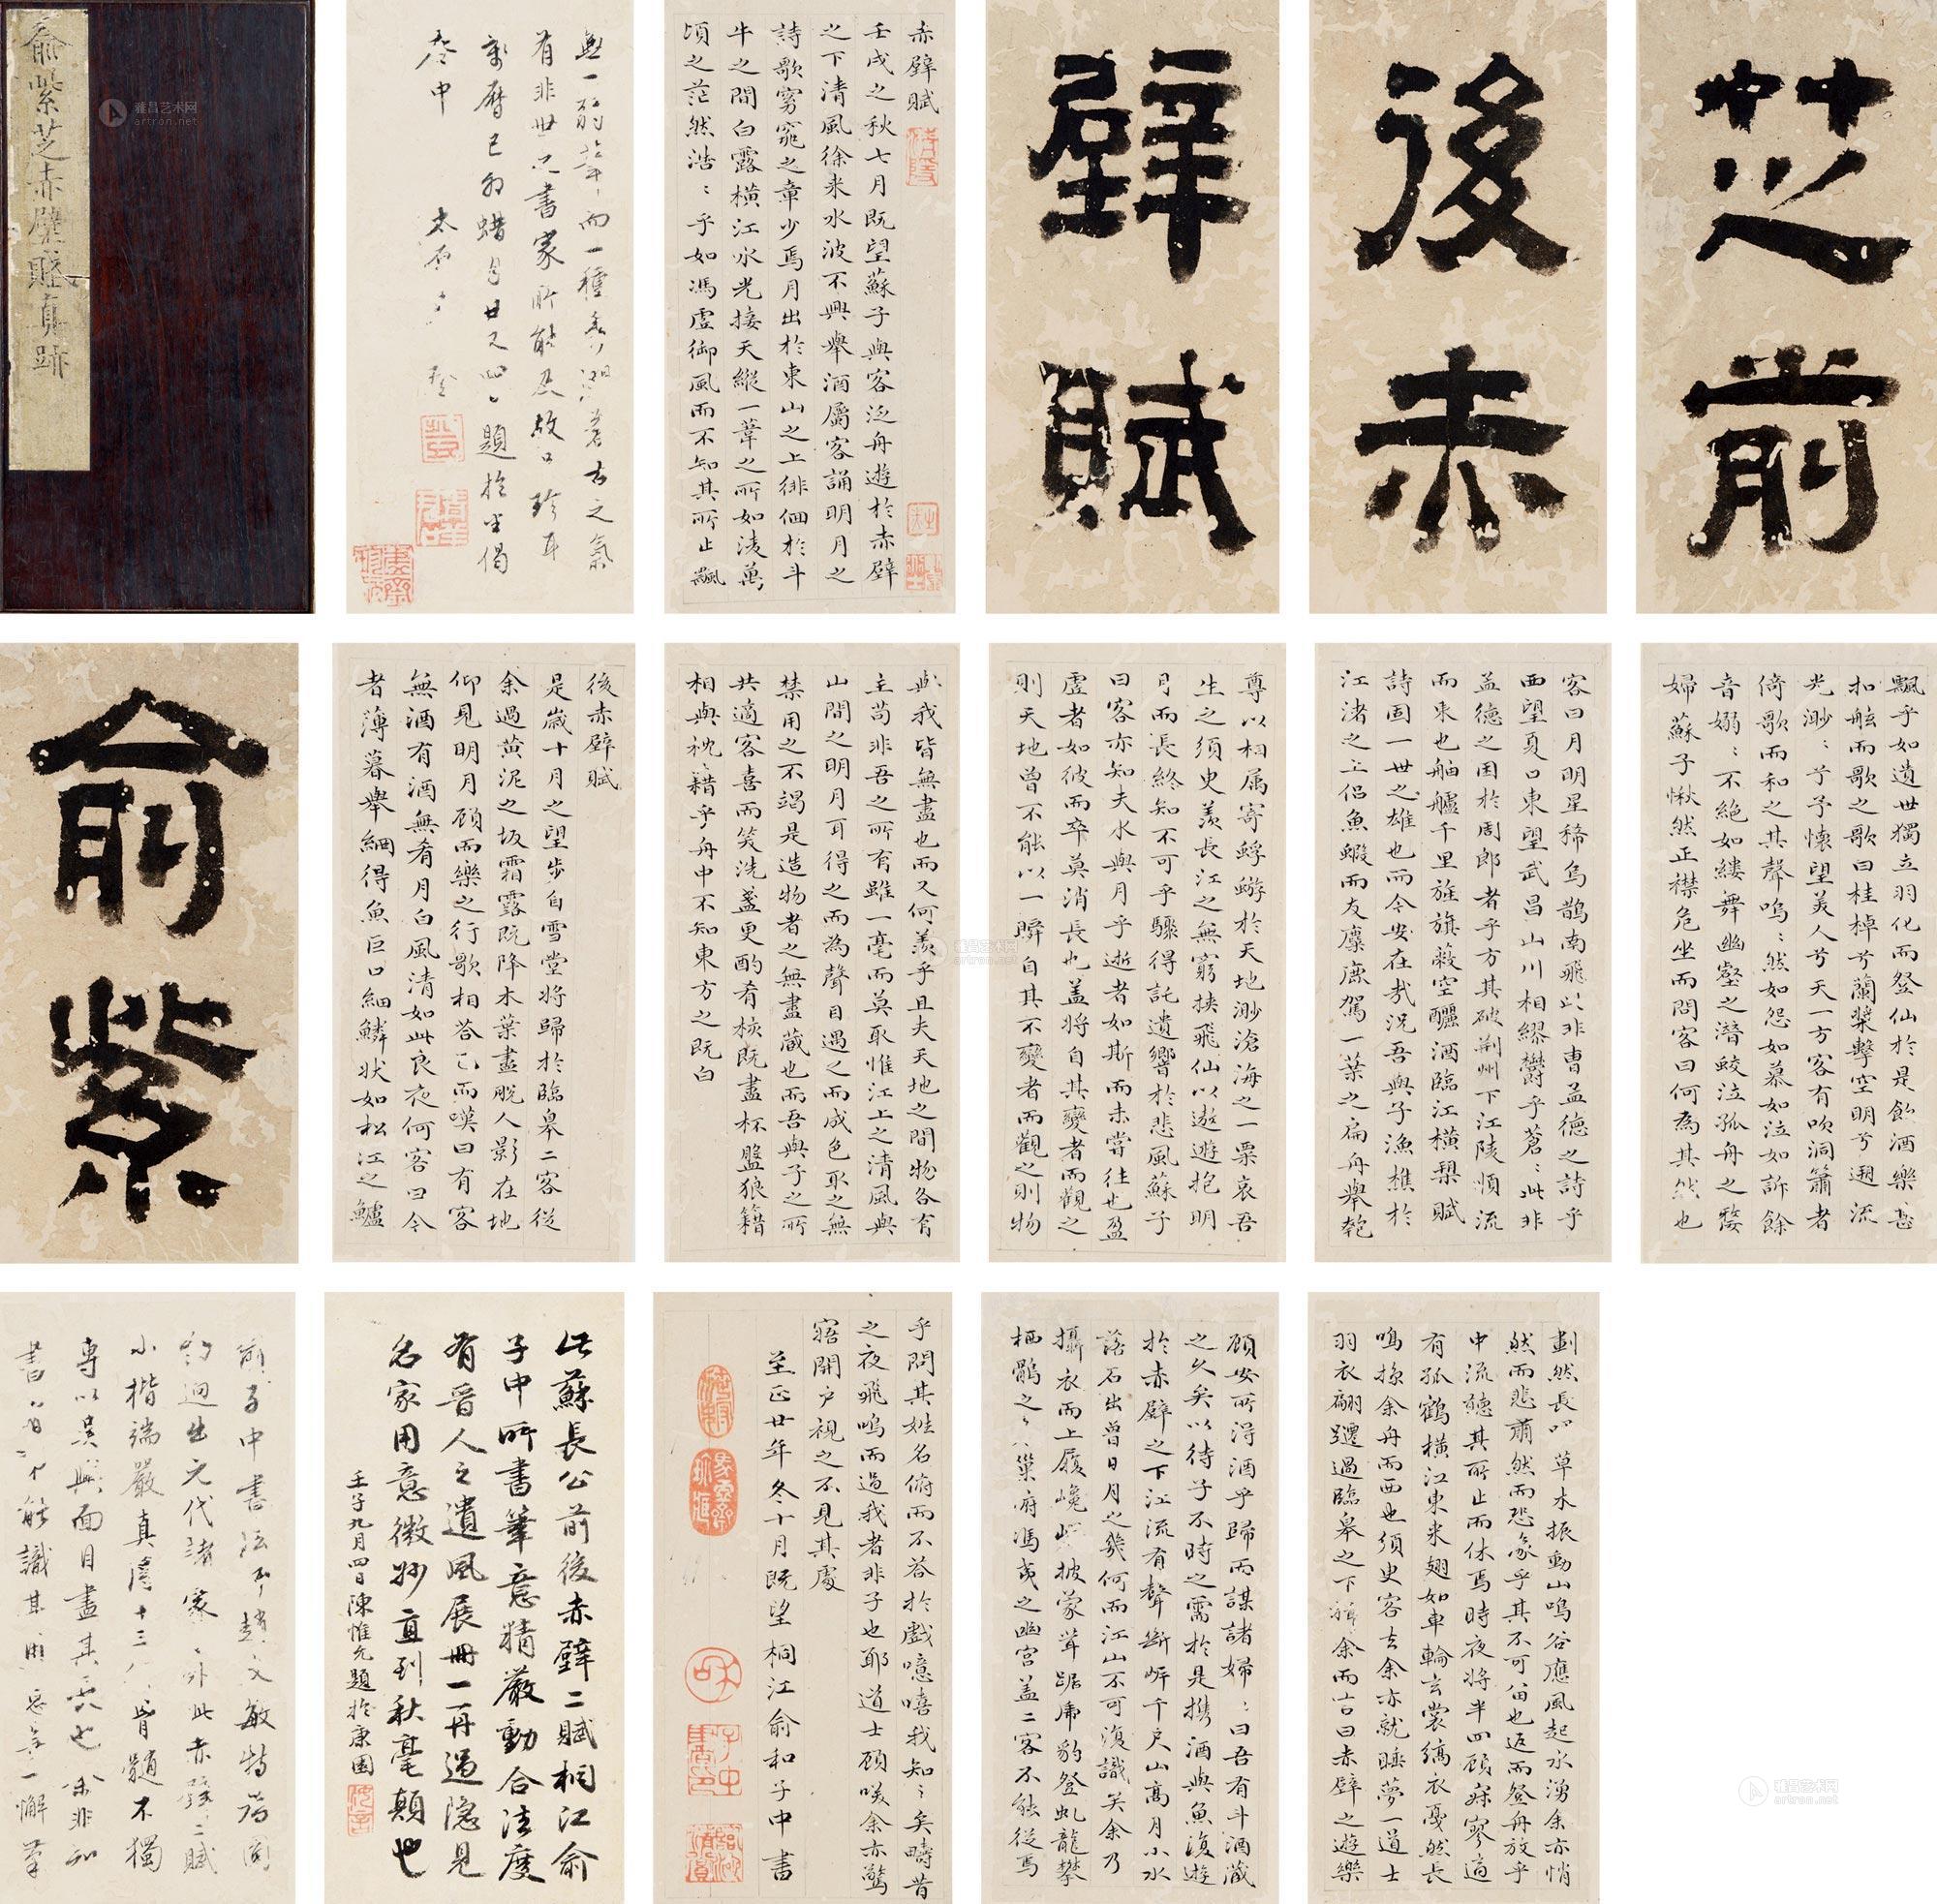 俞紫芝赤壁賦真跡
俞紫
芝前
後赤
壁賦
赤壁賦
壬戌之秋七月既望蘇子與客泛舟遊於赤壁
之下清風徐来水波不興舉酒屬客誦明月之
詩歌窈窕之章少焉月出於東山之上徘徊於斗
牛之間白露橫江水光接天縱一葦之所如淩萬
頃之茫然浩〻乎如馮虛御風而不知其所止飄
飄乎如遺世獨立羽化而登仙於是飲酒樂甚
扣舷而歌之歌曰桂棹兮蘭槳擊空明兮遡流
光渺〻兮予懷望美人兮天一方客有吹洞簫者
倚歌而和之其聲嗚〻然如怨如慕如泣如訴餘
音嫋〻不絕如縷舞幽壑之潛蛟泣孤舟之嫠
婦蘇子愀然正襟危坐而問客曰何為其然也
客曰月明星稀烏鵲南飛此非曹孟德之詩乎
西望夏口東望武昌山川相繆鬱乎蒼〻此非
孟德之困於周郎者乎方其破荆州下江陵順流
而東也舳艫千里旌旗蔽空釃酒臨江橫槊賦
詩固一世之雄也而今安在哉況吾與子漁樵於
江渚之上侶魚鰕而友麋鹿駕一葉之扁舟舉匏
尊以相属寄蜉蝣於天地渺滄海之一粟哀吾
生之須臾羨長江之無窮挾飛仙以遨遊抱明
月而長終知不可乎驟得託遺響於悲風蘇子
曰客亦知夫水與月乎逝者如斯而未嘗往也盈
虛者如彼而卒莫消長也盖將自其變者而觀之
則天地曾不能以一瞬自其不變者而觀之則物
與我皆無盡也而又何羨乎且夫天地之間物各有
主苟非吾之所有雖一毫而莫取惟江上之清風與
山間之明月耳得之而為聲目遇之而成色取之無
禁用之不竭是造物者之無盡蔵也而吾與子之所
共適客喜而笑洗盞更酌肴核既盡杯盤狼籍
相與枕籍乎舟中不知東方之既白
後赤壁賦
是歲十月之望步自雪堂將歸於臨皋二客従
余過黄泥之坂霜露既降木葉盡脫人影在地
仰見明月顧而樂之行歌相答已而嘆曰有客
無酒有酒無肴月白風清如此良夜何客曰今
者薄暮舉網得魚巨口細鱗狀如松江之鱸
顧安所得酒乎歸而謀諸婦〻曰吾有斗酒蔵
之久矣以待子不時之需於是攜酒與魚復遊
於赤壁之下江流有聲斷岸千尺山高月小水
落石出曾日月之幾何而江山不可復識矣余乃
攝衣而上履巉披蒙茸踞虎豹登虬龍攀
栖鶻之巢府馮夷之幽宮盖二客不能従焉
劃然長草木振動山鳴谷應風起水湧余亦悄
然而悲肅然而恐凛乎其不可留也返而登舟放乎
中流聽其所止而休焉時夜将半四顧寂寥適
有孤鶴橫江東来翅如車輪玄裳縞衣戛然長
鳴掠余舟而西也須臾客去余亦就睡夢一道士
羽衣翩躚過臨皋之下揖余而言曰赤壁之遊樂
乎問其姓名俯而不答於戲噫嘻我知〻矣疇昔
之夜飛鳴而過我者非子也耶道士顧咲余亦驚
寤開户視之不見其處
至正廿年冬十月既望桐江俞和子中書
此蘇長公前後赤壁二賦桐江俞
子中所書筆意精嚴動合法度
有晉人之遺風展冊一再過隐見
名家用意微妙直到秋毫顛也
壬子九月四日陳惟允題於康園
俞子中書法趙文敏特為
迥出元代諸家外此赤壁二賦
小楷端嚴真得十三骨髓不獨
專以吳興面目盡其也余非知
書者不能識其用意無一懈筆
無一筆而一種着古之氣
有非世人書家所能及故口珍耳
萬曆己卯蜡月廿又四日題於坐偈
庵中 太原